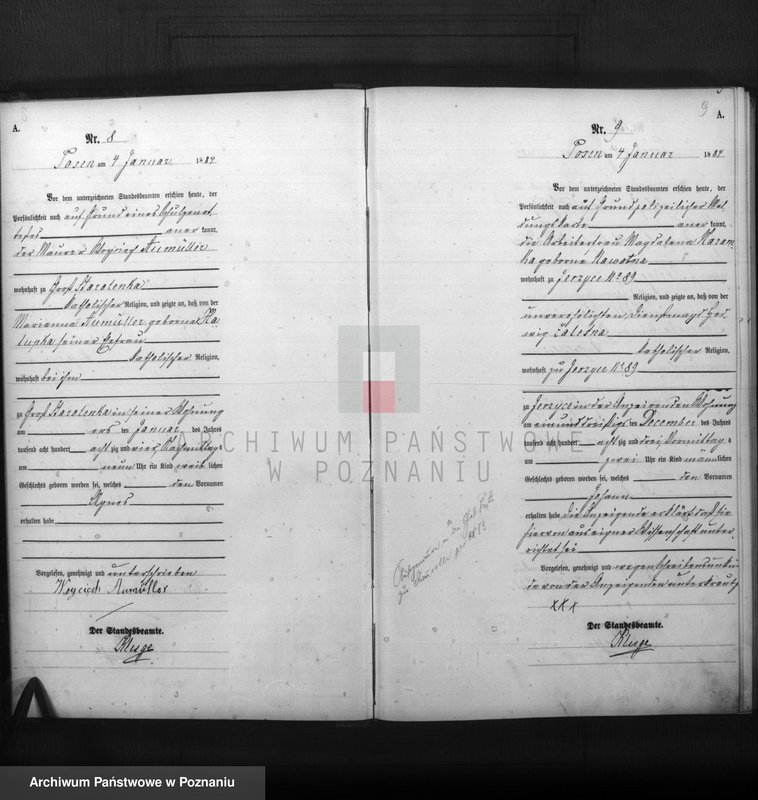 A.
Nr. 8
Posen am 4 Januar 1884
Vor dem unterzeichneten Standesbeamten erschien heute, der
Persönlichkeit nach auf Grund eines
aner kannt,
der Maurer Woyciech Aumüller
wohnhaft zu Groß Starolenka
katholischer Religion, und zeigte an, daß von der
Marianna Aumüller geborne
seiner Ehefrau
katholischer Religion,
wohnhaft bei ihm
zu Groß Starolenka in seiner Wohnung
am ersten Januar des Jahres
tausend acht hundert acht zig und vier Nachmittag s
um neun Uhr ein Kind weib lichen
Geschlechts geboren worden sei, welches den Vornamen
Agnes
erhalten habe
Vorgelesen, genehmigt und unterschrieben
Woyciech Aumüller
Der Standesbeamte.
Kluge
9
A.
Nr. 9
Posen am 4 Januar 1884
Vor dem unterzeichneten Standesbeamten erschien heute, der
Persönlichkeit nach auf Grund polizeilicher Mel
dungskarte aner kannt,
die Arbeiterfrau Magdalena
geborne Nawotna
wohnhaft zu Jerzyce No 89
Religion, und zeigte an, daß von der
unverehelichten Dienstmagd Hed
wig Zalesna
katholischer Religion,
wohnhaft zu Jerzyce No 89
zu Jerzyce in der Anzeigenden Wohnung
am einunddreißigsten December des Jahres
tausend acht hundert acht zig und drei Vormittag s
um zwei Uhr ein Kind männlichen
Geschlechts geboren worden sei, welches den Vornamen
Johann
erhalten habe Die Anzeigende erklärt daß sie
hiervon aus eigner Wissenschaft unter
richtet sei
Vorgelesen, genehmigt und wegen Schreibensunkun
de von der Anzeigenden unterkreuzt
xxx
Der Standesbeamte.
Kluge
ARCHIWUM PAŃSTWOWE
W POZNANIU
Archiwum Państwowe w Poznaniu